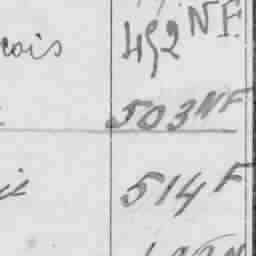 çois 492 NF.
503 NF
514 F